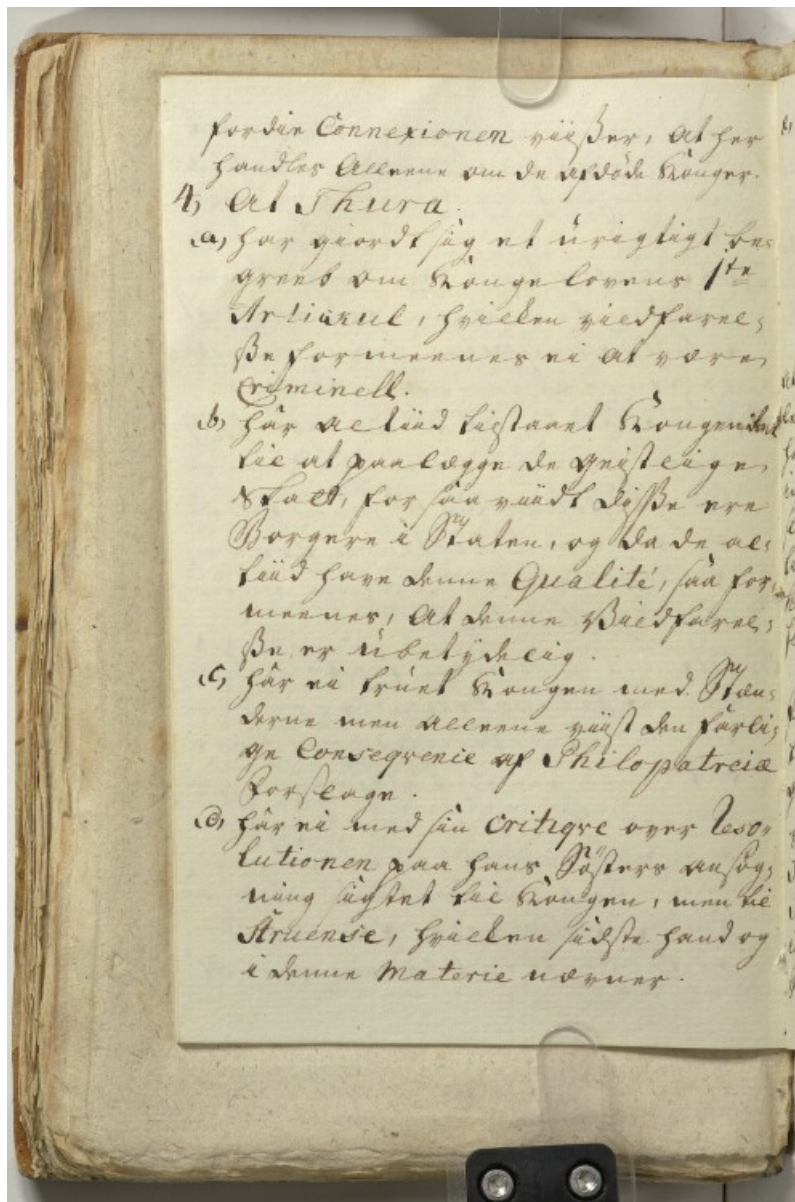 fordie Connexionen viißer, at her
handles alleene om de afdøde Konger.
4, At Thura.
a, har giordt sig et urigtigt be¬
greeb om Kongelovens 1te
Articul, hvilken vildfarel¬
ße formeenes ei at være
Criminell.
b, har altiid tilstaaet Kongen
til at paalægge de geistlige
Skatt, for saa viidt diße ere
Borgere i Staten, og da de al¬
tiid have denne Qualité, saa for¬
meenes, at denne Vildfarel¬
ße er ubetydelig.
c, har ei truet Kongen med Stæn¬
derne men alleene viist den farli¬
ge Conseqvence af Philopatreiæ
Forslage.
d, har ei med sin Critiqve over Reso¬
lutionen paa hans Søsters ansøg¬
ning sigtet til Kongen, men til
Struense, hvilken sidste hand og
i denne Materie nævner.